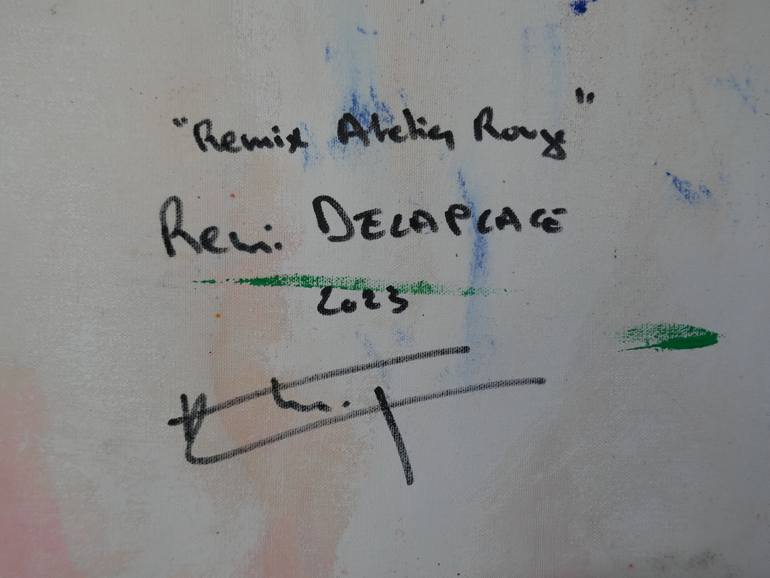 "Remix Atelier Rouge"
Remi DELAPLACE
2023